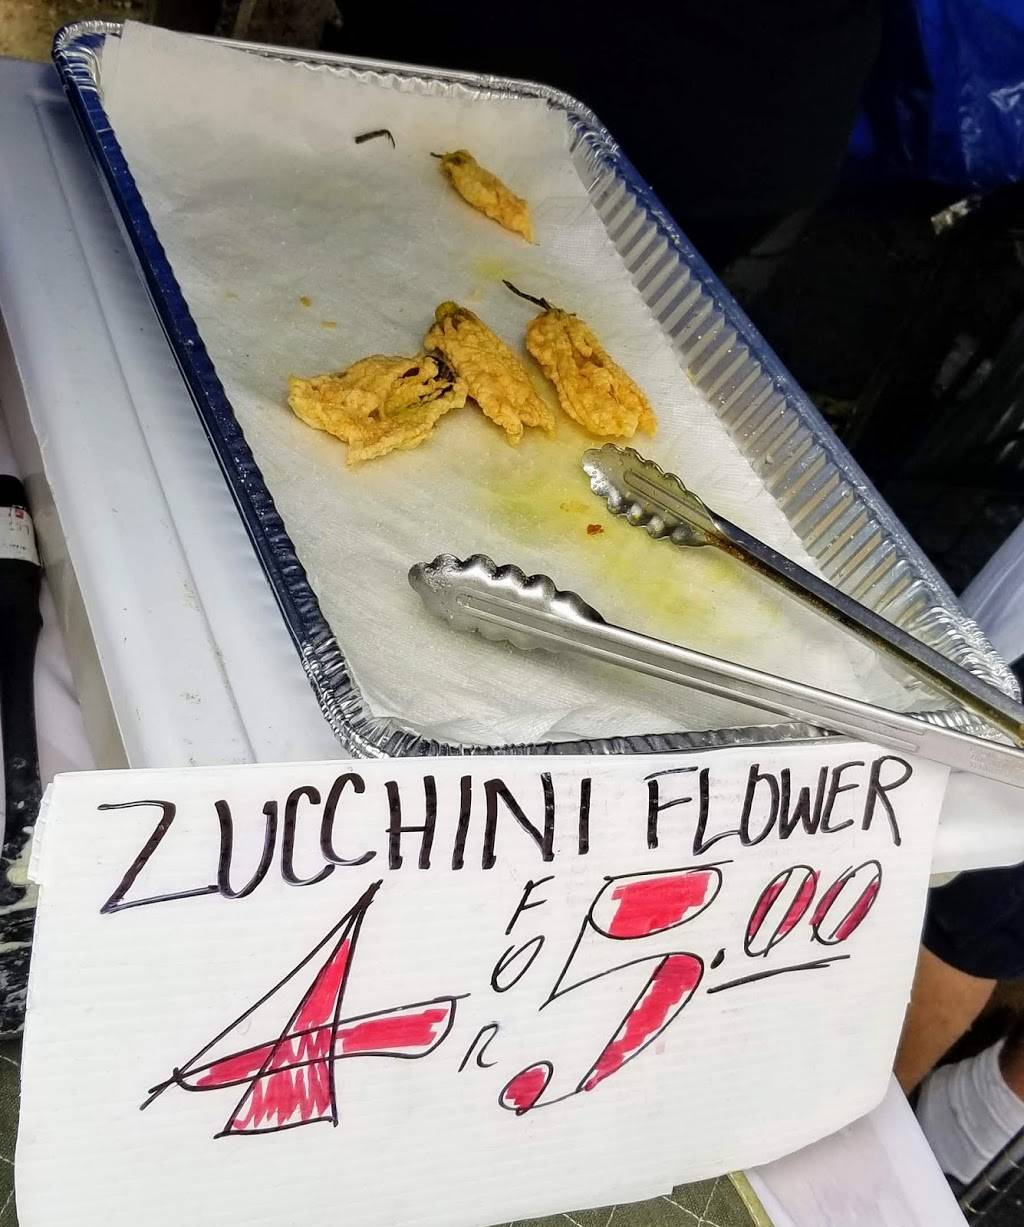 ZUCCHINI FLOWER
4 FOR 5.00